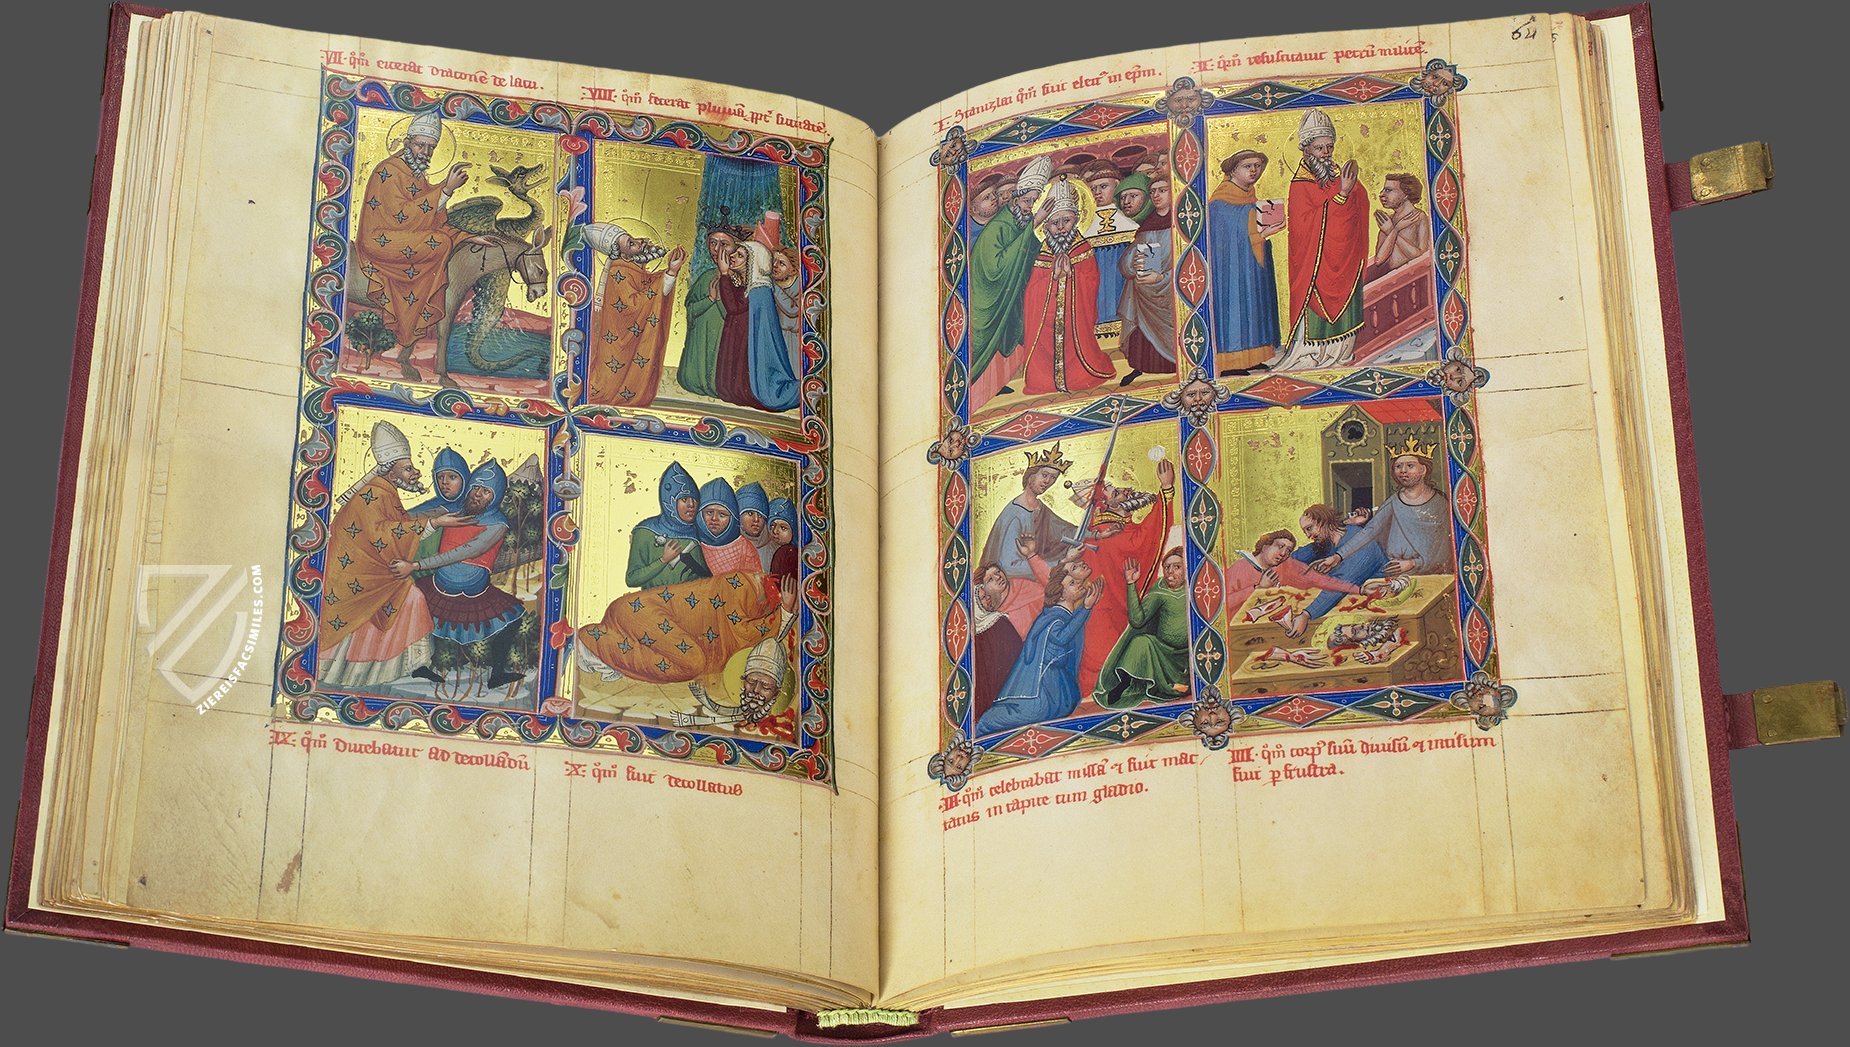 ·VII· qm̄ eicerat draconē de lacu.
·VIII· qm̄ fecerat pluviā ppt̄ siccitatē.
·IX· qm̄ ducebatur ad decollādū
·X· qm̄ fuit decollatus
64
·I· Stanizlai qm̄ fuit elect' in ep̄m.
·II· qm̄ resuscitavit petrū militē.
·III· qm̄ celebrabat missā ⁊ fuit mac/
tatus in capite cum gladio.
·IIII· qm̄ corp' suū divisū ⁊ incisum
fuit p frustra.
ZIEREISFACSIMILES.COM